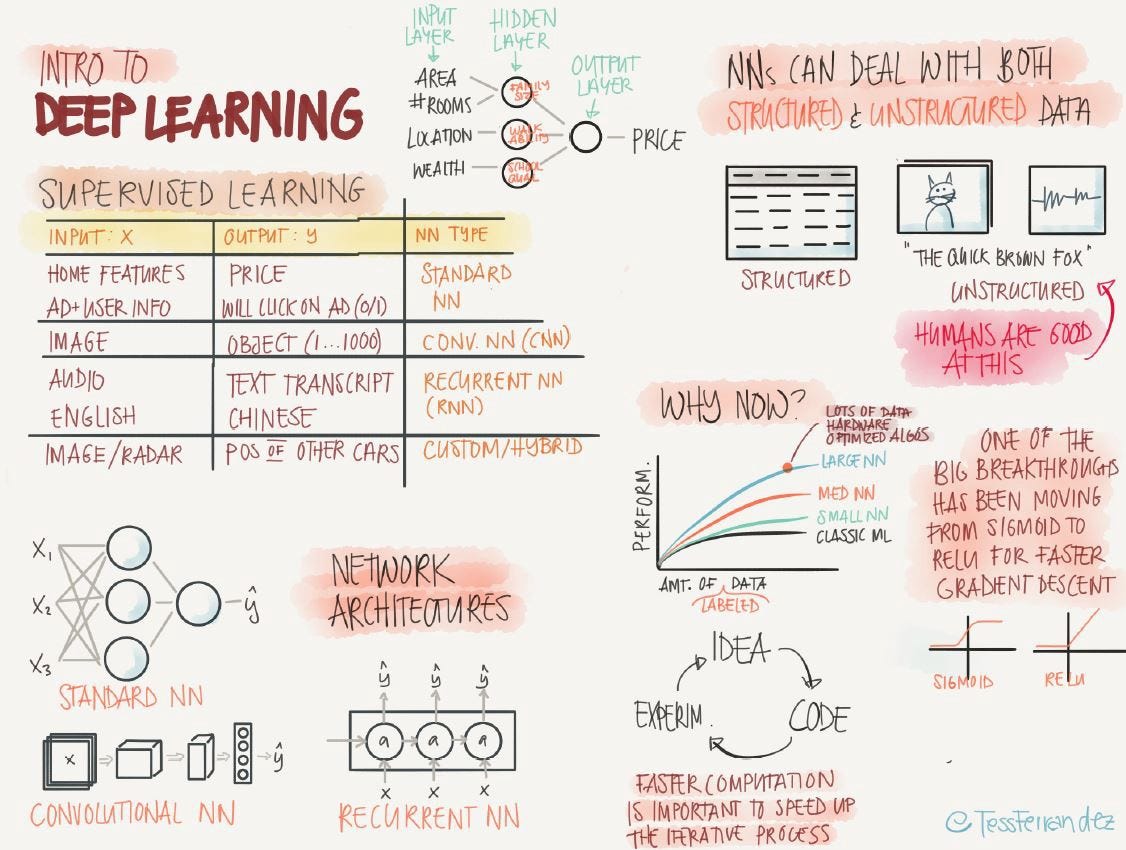 INTRO TO
DEEP LEARNING
INPUT
LAYER
HIDDEN
LAYER
OUTPUT
LAYER
AREA
#ROOMS
LOCATION
WEALTH
FAMILY
SIZE
WALK
ABILITY
SCHOOL
QUAL
PRICE
SUPERVISED LEARNING
INPUT: X OUTPUT: Y NN TYPE
HOME FEATURES PRICE STANDARD
AD+USER INFO WILL CLICK ON AD (0/1) NN
IMAGE OBJECT (1...1000) CONV. NN (CNN)
AUDIO TEXT TRANSCRIPT RECURRENT NN
ENGLISH CHINESE (RNN)
IMAGE/RADAR POS OF OTHER CARS CUSTOM/HYBRID
NNs CAN DEAL WITH BOTH
STRUCTURED & UNSTRUCTURED DATA
STRUCTURED
"THE QUICK BROWN FOX"
UNSTRUCTURED
HUMANS ARE GOOD
AT THIS
WHY NOW?
LOTS OF DATA
HARDWARE
OPTIMIZED ALGOS
LARGE NN
MED NN
SMALL NN
CLASSIC ML
PERFORM.
AMT. OF DATA
LABELED
ONE OF THE
BIG BREAKTHROUGHS
HAS BEEN MOVING
FROM SIGMOID TO
RELU FOR FASTER
GRADIENT DESCENT
SIGMOID
RELU
NETWORK
ARCHITECTURES
X1
X2
X3
ŷ
STANDARD NN
X
ŷ
CONVOLUTIONAL NN
ŷ ŷ ŷ
a a a
X X X
RECURRENT NN
IDEA
CODE
EXPERIM.
FASTER COMPUTATION
IS IMPORTANT TO SPEED UP
THE ITERATIVE PROCESS
@TessFerrandez